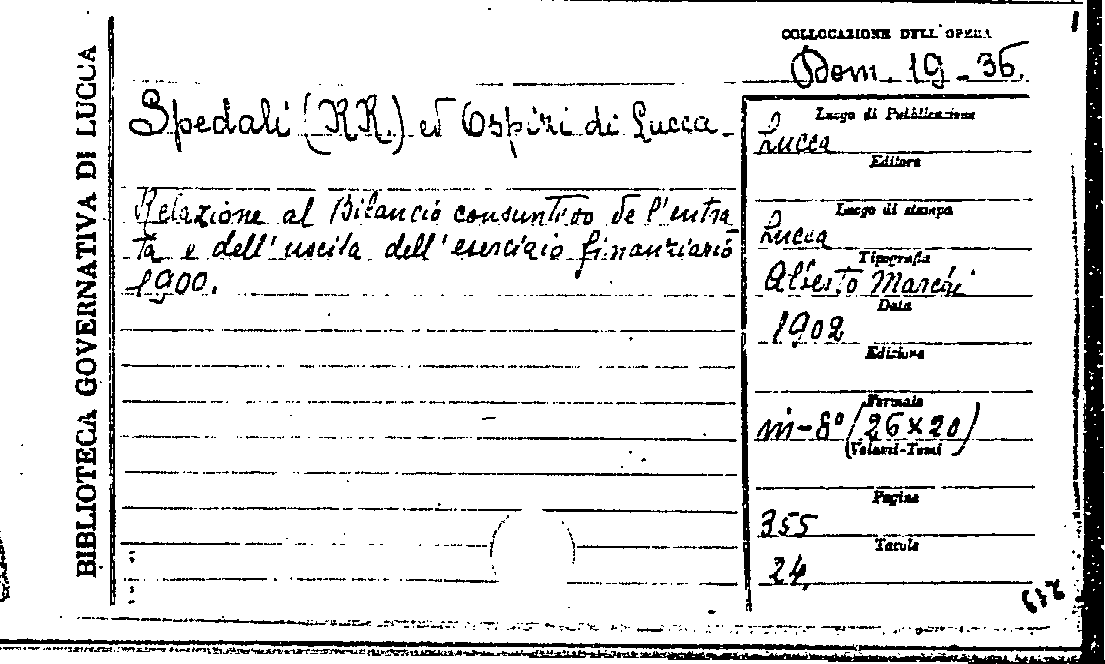 BIBLIOTECA GOVERNATIVA DI LUCCA
COLLOCAZIONE DELL'OPERA
Dom. 19 - 36.
Spedali (RR.) ed Ospizi di Lucca.
Relazione al Bilancio consuntivo de l'entra
ta e dell'uscita dell'esercizio finanziario
1900.
Luogo di Pubblicazione
Lucca
Editore
Luogo di stampa
Lucca
Tipografia
Alberto Marchi
Data
1902
Edizione
Formato
in-8° (26×20)
(Volumi-Tomi
Pagine
355
Tavole
24.